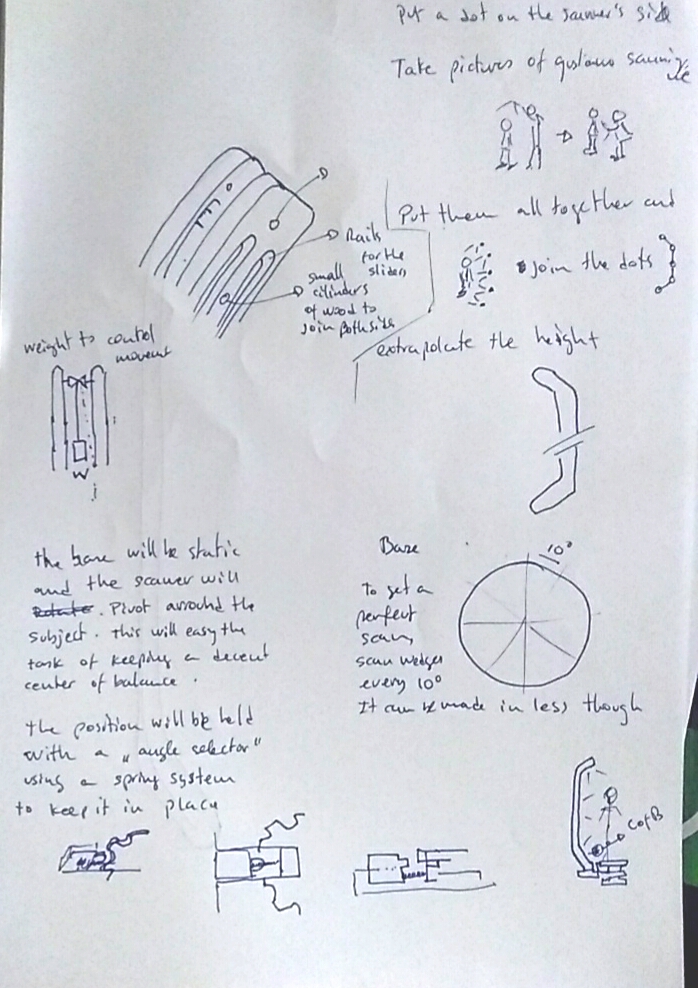 Put a dot on the scanner's side
Take pictures of gustavo scanning
Put them all together and
Join the dots
extrapolate the height
Rails
for the
sliders
small
cilinders
of wood to
join both sids
weight to control
movemt
W
the base will be static
and the scanner will
Rotate. Pivot arround the
subject. this will easy the
task of keeping a decent
center of balance.
the position will be held
with a "angle selector"
using a spring system
to keep it in place
Base
10°
To get a
perfect
scan,
scan wedges
every 10°
It can be made in less though
C of B